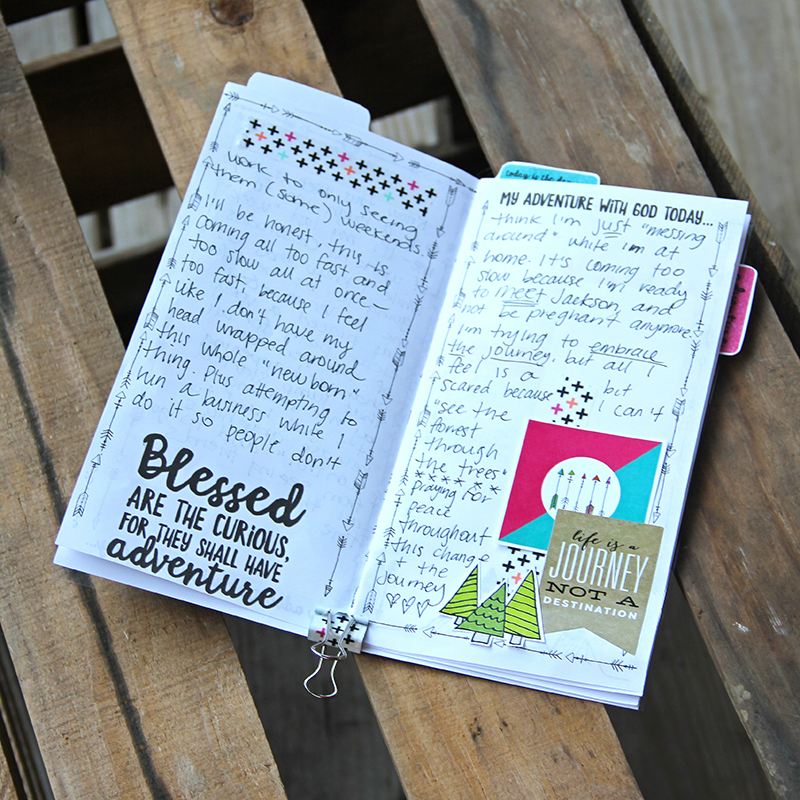 work to only seeing
them (some) weekends.
I'll be honest, this is
coming all too fast and
too slow all at once –
too fast, because I feel
like I don't have my
head wrapped around
this whole "newborn"
thing. Plus attempting to
run a business while I
do it so people don't
Blessed
ARE THE CURIOUS,
FOR THEY SHALL HAVE
adventure
today is the
MY ADVENTURE WITH GOD TODAY...
think I'm just "messing
around" while im at
home. It's coming too
slow because I'm ready
to meet Jackson, and
not be pregnant anymore.
I'm trying to embrace
the journey, but all I
feel is a but
scared because I can't
"see the
forrest
through
the trees"
praying for
peace
throughout
this change
+ the
journey
life is a
JOURNEY
NOT A
DESTINATION